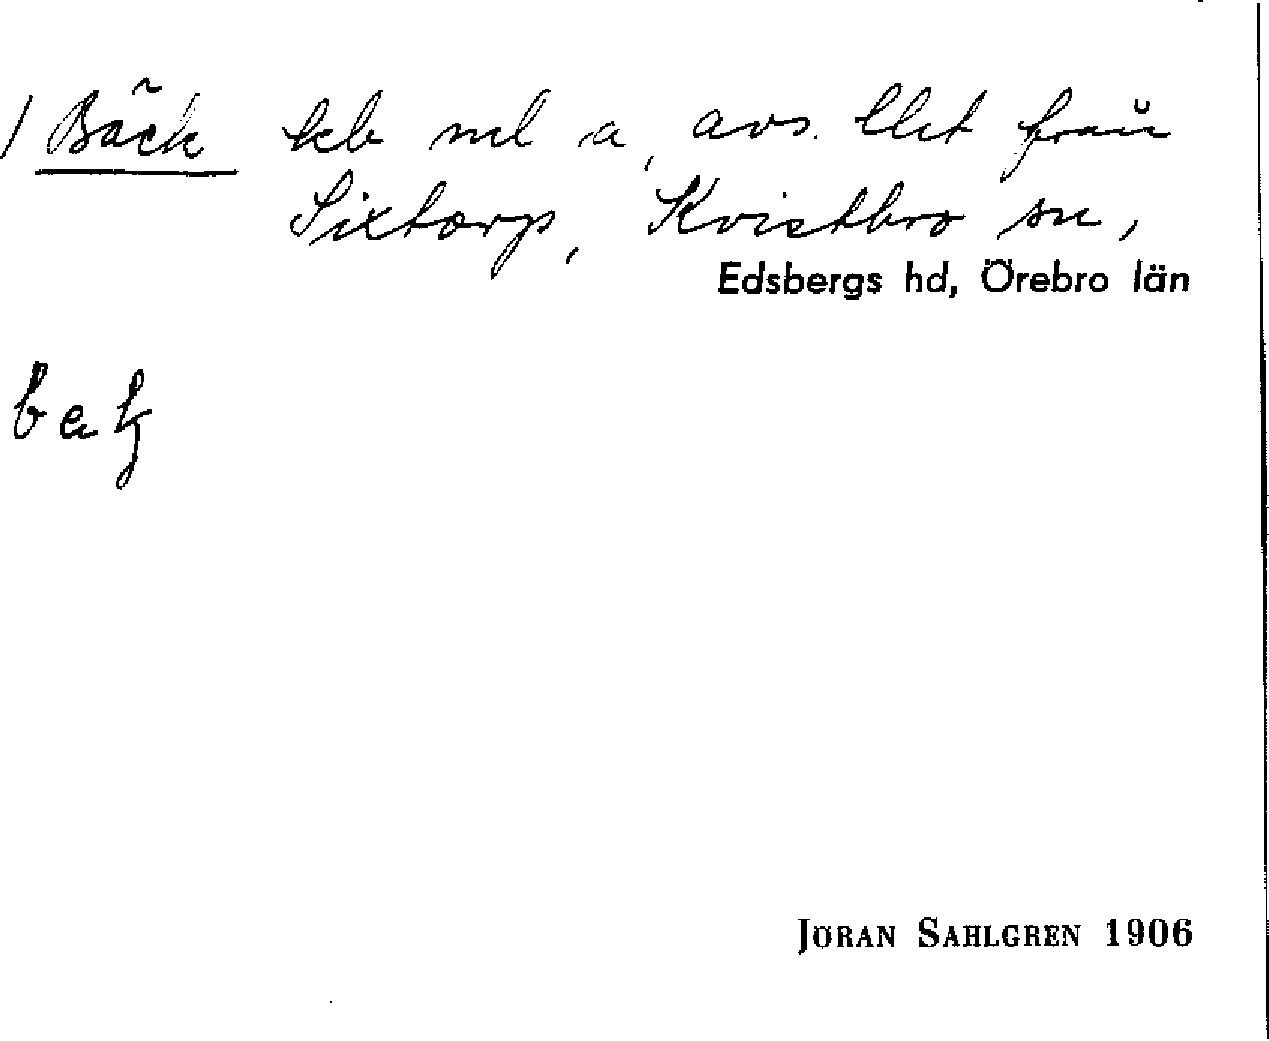 / Bäck kb nd a, avs. Ulet från
Sixtorp, Kvistbro sn,
Edsbergs hd, Örebro län
bak
JÖRAN SAHLGREN 1906